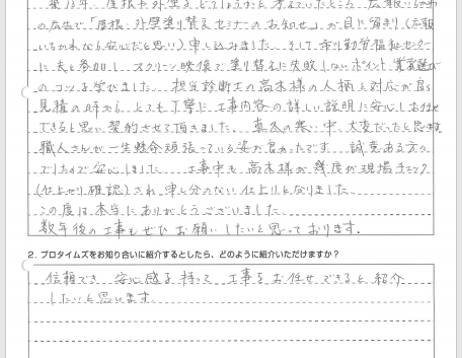 築13年、屋根も外壁もどうしようかと考えていたところ、広報
の広告で「屋根・外壁塗り替えセミナーのお知らせ」が目に留まり(広報
いちかわなら安心だと思い)申し込みました。そして市川勤労福祉センター
に夫と参加し、スクリーン映像で塗り替えに失敗しないポイント、業者選び
のコツを学びました。担当診断士の高木様の人柄と対応が良く
見積の時から、とても丁寧に工事内容の詳しい説明に安心しお任せ
できると思い契約させて頂きました。真冬の寒い中、大変だったと思いますが
職人さんが一生懸命頑張っている姿が良かったです。誠意ある方々
でしたので安心しました。工事中も高木様が幾度か現場チェック
(仕上がり確認)され、申し分のない仕上りとなりました。
この度は本当にありがとうございました。
数年後の工事もぜひお願いしたいと思っております。
2. プロタイムズをお知り合いに紹介するとしたら、どのように紹介いただけますか?
信頼でき 安心感を持って 工事をお任せできると紹介
したいと思います。